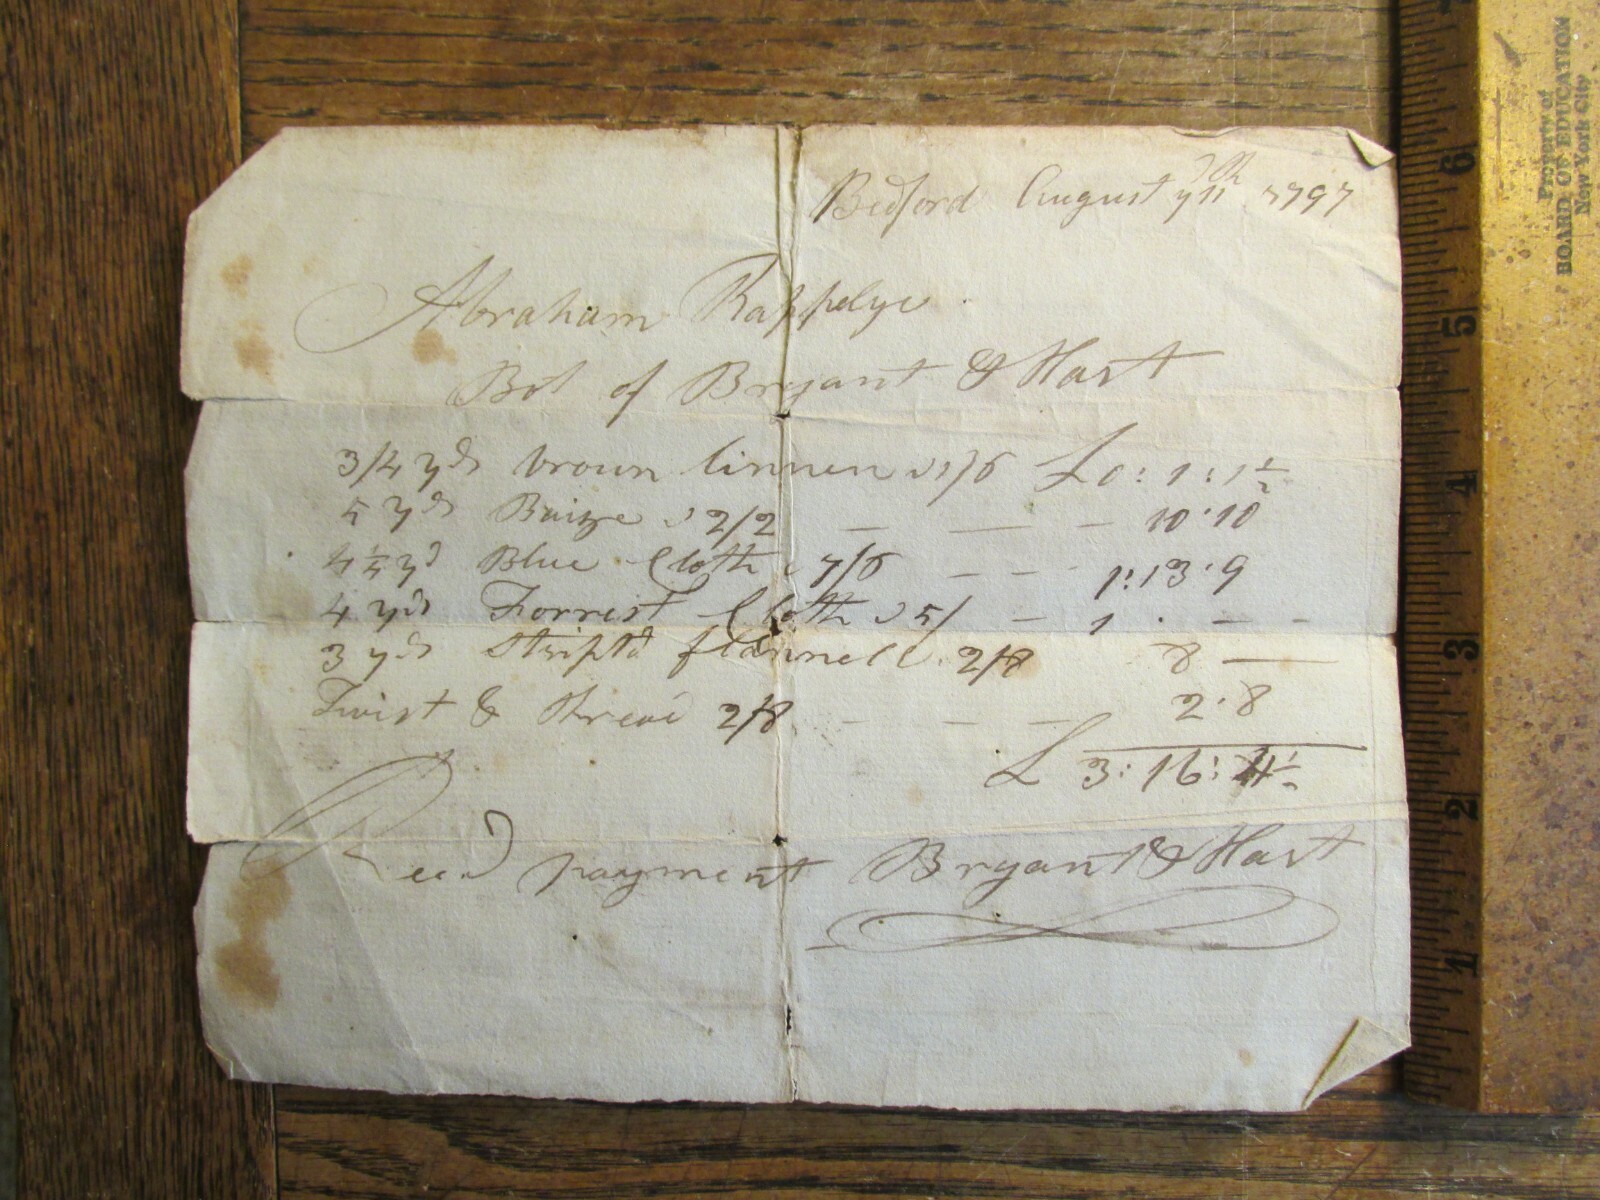 Bedford August 7th 1797
Abraham Rappelye
Bot of Bryant & Hart
3/4 yds brown linnen @ 1/6 £0:1:1½
5 yds Baize @ 2/2 — — — 10.10
4½ yd Blue Cloth @ 7/6 — — 1:13.9
4 yds Forrest Cloth @ 5/ — 1 . — -
3 yds Stript'd flannell 2/8 8 —
Twist & thread 2/8 — — — 2.8
£ 3:16:4½
Recd payment Bryant & Hart
6
5
4
3
2
1
Property of
BOARD OF EDUCATION
New York City